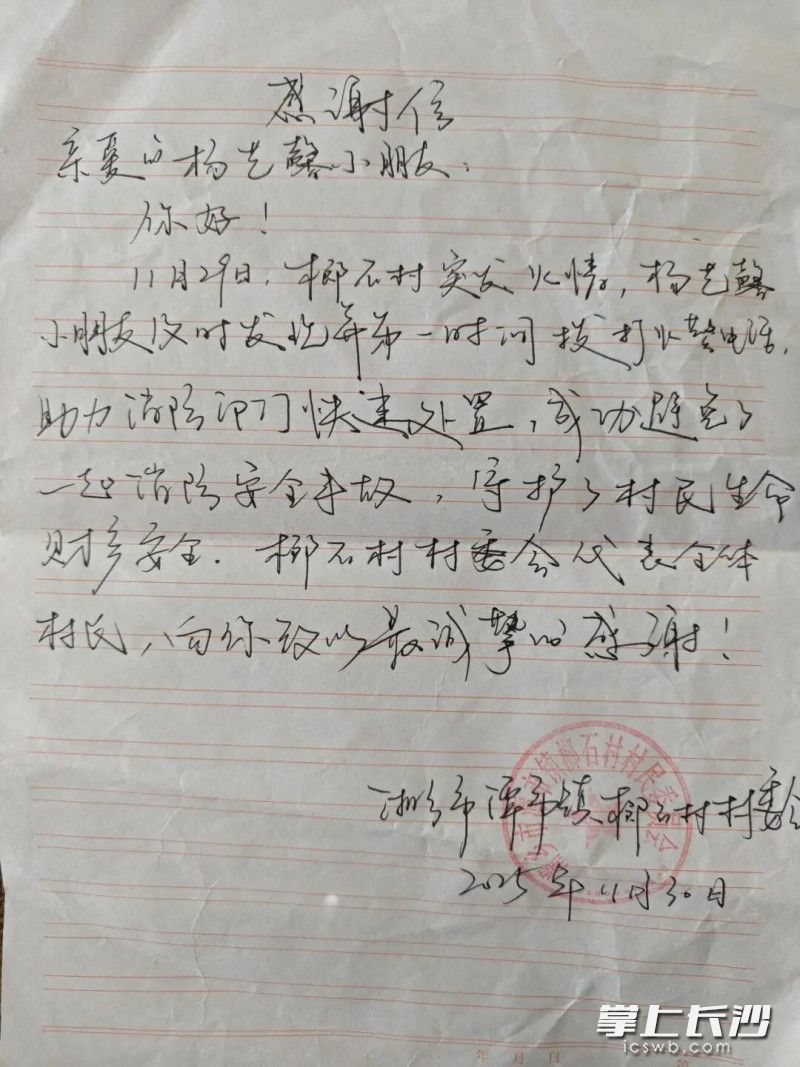 感谢信
亲爱的杨馨小朋友：
你好！
11月29日，榔石村突发火情，杨馨
小朋友及时发现并第一时间拨打火警电话，
助力消防部门快速处置，成功避免了
一起消防安全事故，守护了村民生命
财产安全．榔石村村委会代表全体
村民，向你致以最诚挚的感谢！
湘乡市潭市镇榔石村村委会
镇榔石村村民委员会
2025年11月30日
年 月 日
第
掌上长沙
icswb.com